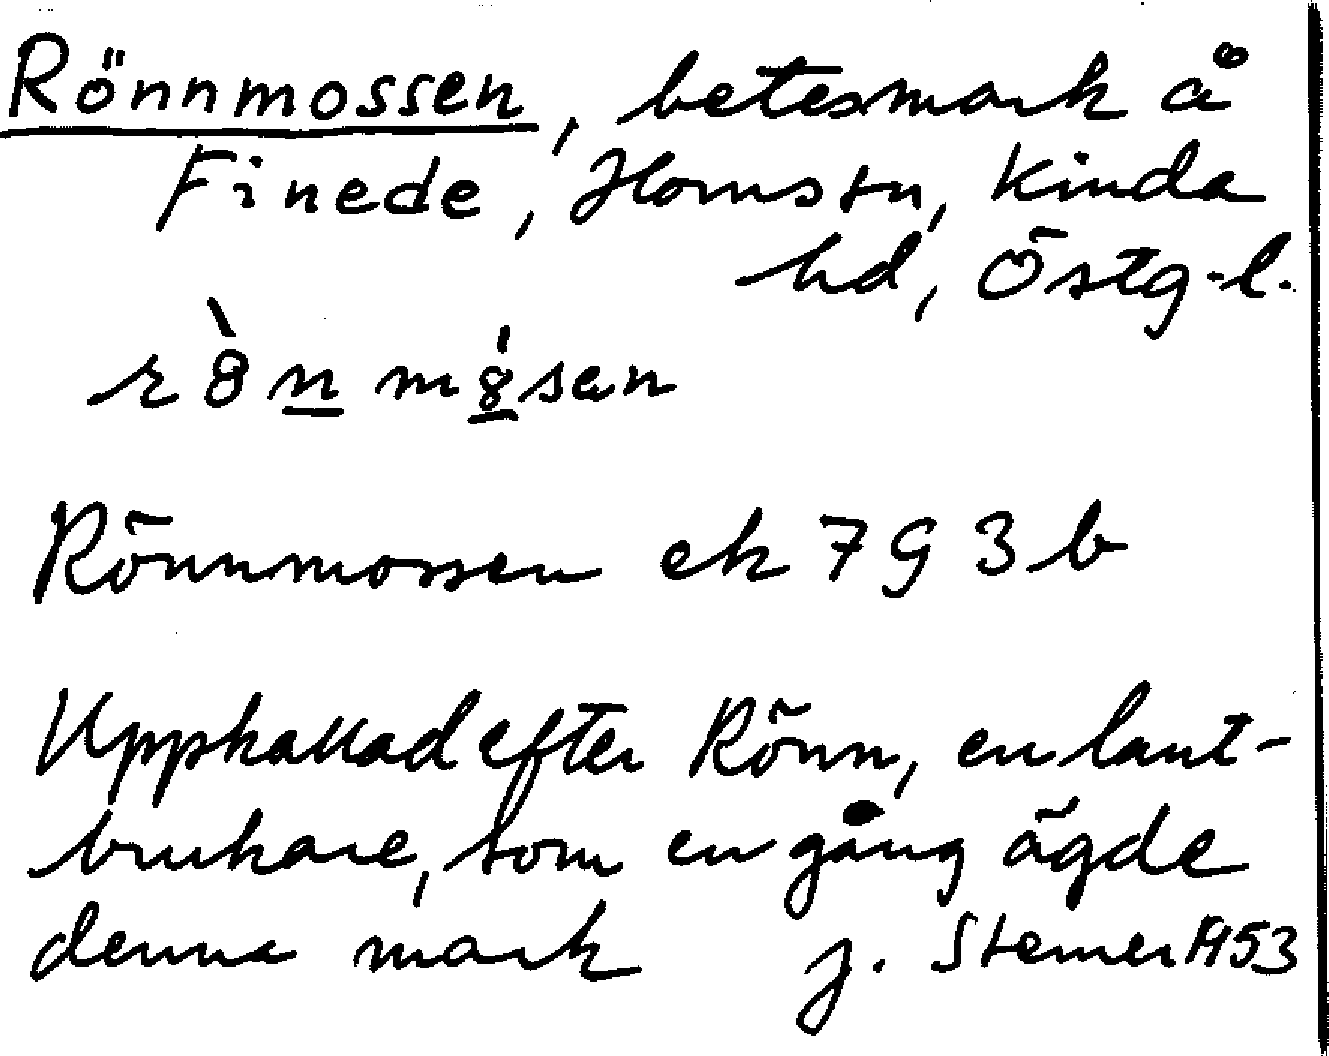 Rönnmossen, betesmark å
Finede, Hornstn, Kinda
hd, Östg-l.
Rönnmossen ek 793b
Uppkallad efter Rönn, en lant-
brukare, som en gång ägde
denna mark J. Sterner 1953